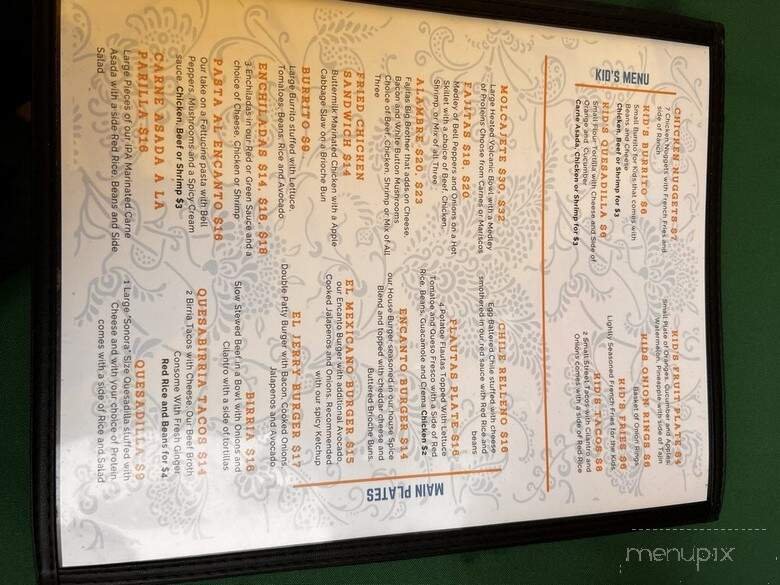 KID'S MENU
CHICKEN NUGGETS $7
7 Chicken Nuggets with French Fries and
side of Ranch
KID'S BURRITO $6
Small Burrito for Kids that comes with
Beans and Cheese
Chicken, Beef or Shrimp for $3
KID'S QUESADILLA $6
Small Flour Tortilla with Cheese and Side of
Orange and Cucumber
Carne Asada, Chicken or Shrimp for $3
KID'S FRUIT PLATE $4
Small Plate of Oranges, Cucumber and Apples,
Watermelon, Pineapple with Side of Tajin
KIDS ONION RINGS $6
Basket of Onion Rings
KID'S FRIES $6
Lightly Seasoned French Fries for the Kids
KID'S TACOS $8
2 Small Street Tacos with Cilantro and
Onions comes with a side of Red Rice
MAIN PLATES
MOLCAJETE $30, $32
Large Heated Volcanic Bowl with a Medley
of Proteins Choose From Carnes or Mariscos
FAJITAS $18, $20
Medley of Bell Peppers and Onions on a Hot
Skillet with a choice of Beef, Chicken,
Shrimp, or Mix of all Three
ALAMBRE $20, $23
Fajitas Big Brother that adds on Cheese,
Bacon and White Button Mushrooms
Choice of Beef, Chicken, Shrimp or Mix of All
Three
FRIED CHICKEN
SANDWICH $14
Buttermilk Marinated Chicken with a Apple
Cabbage Slaw on a Brioche Bun
BURRITO $9
Large Burrito stuffed with Lettuce,
Tomatoes, Beans, Rice and Avocado
ENCHILADAS $14, $16, $18
3 Enchiladas in our Red or Green Sauce and a
choice of Cheese, Chicken or Shrimp
PASTA AL ENCANTO $16
Our take on a Fettucine pasta with Bell
Peppers, Mushrooms and a Spicy Cream
sauce, Chicken, Beef or Shrimp $3
CARNE ASADA A LA
PARILLA $16
Large Pieces of our IPA Marinated Carne
Asada with a side Red Rice, Beans and Side
Salad
CHILE RELLENO $16
Egg Battered Chile stuffed with cheese
smothered in our red sauce with Red Rice and
beans
FLAUTAS PLATE $16
4 Potatoe Flautas Topped With Lettuce
Tomatoe and Queso Fresco with a Side of Red
Rice, Beans, Guacamole and Crema Chicken $2
ENCANTO BURGER $14
our House Burger seasoned in our house Spice
Blend and topped with cheddar cheese and
Buttered Brioche Buns.
EL MEXICANO BURGER $15
our Encanto Burger with additional Avocado,
Cooked Jalapenos and Onions. Recommended
with our spicy Ketchup
EL JERRY BURGER $17
Double Patty Burger with Bacon, Cooked Onions,
Jalapenos and Avocado
BIRRIA $16
Slow Stewed Beef in a Bowl with Onions and
Cilantro with a side of tortillas
QUESABIRRIA TACOS $14
2 Birria Tacos with Cheese, Our Beef Broth
Consome With Fresh Ginger.
Red Rice and Beans for $4
QUESADILLA $9
1 Large "Sonora" Size Quesadilla stuffed with
Cheese and with your choice of Protein
comes with a side of Rice and Salad
menupix